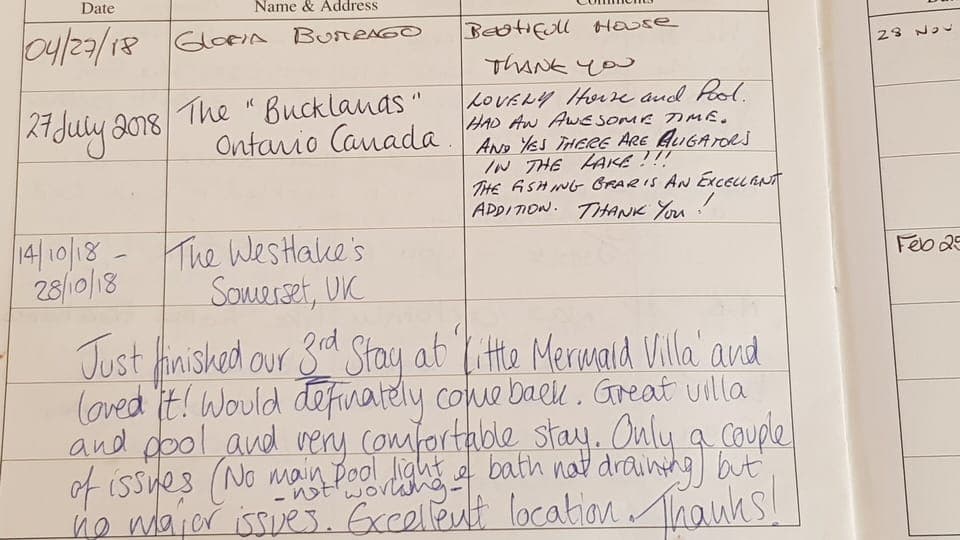 Date Name & Address Comments
04/27/18 GLORIA BUITRAGO Beotifull House
THANK YOU
27 July 2018 The "Bucklands"
Ontario Canada.
LOVELY House and Pool.
HAD AN AWESOME TIME.
AND YES THERE ARE ALIGATORS
IN THE LAKE!!!
THE FISHING GEAR IS AN EXCELLENT
ADDITION. THANK YOU!
14/10/18 -
28/10/18
The Westlake's
Somerset, UK
Just finished our 3rd Stay at 'Little Mermaid Villa' and
loved it! Would definately come back. Great villa
and pool and very comfortable stay. Only a couple
of issues (No main pool light & bath not draining) but
- not working -
no major issues. Excellent location. Thanks!
28 NOV
Feb 25